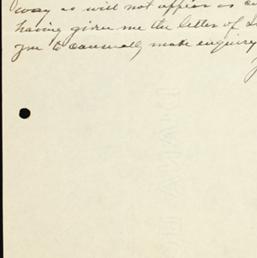 way as will not appear as
having given me the letter of
you to casually make enquiry